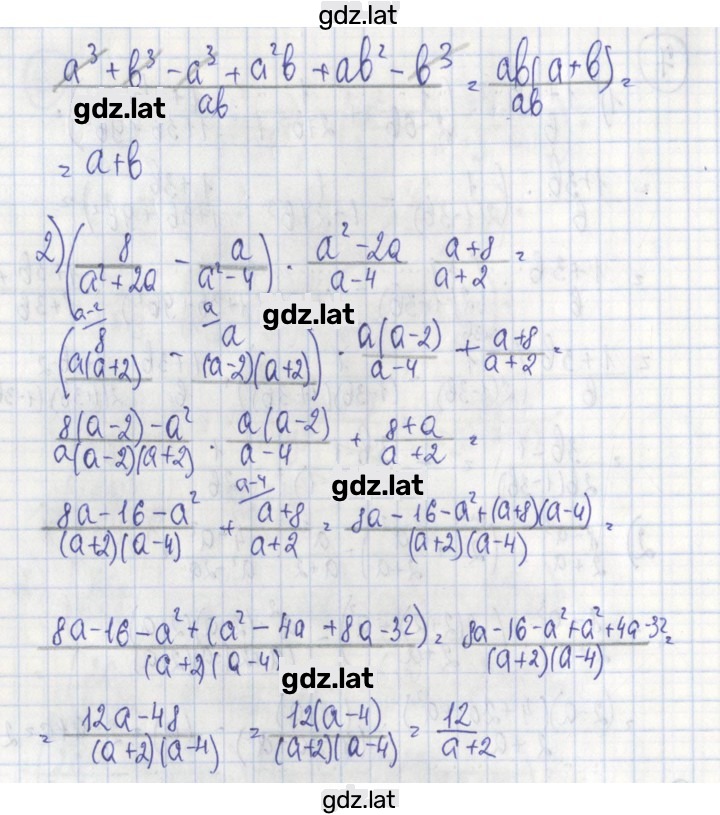 gdz.lat
a³ + b³ - a³ + a²b + ab² - b³ / ab = ab(a+b) / ab =
gdz.lat
= a+b
2) (8 / a²+2a - a / a²-4) · a²-2a / a-4   a+8 / a+2 =
gdz.lat
(a-2\ 8 / a(a+2) - a\ a / (a-2)(a+2)) · a(a-2) / a-4 + a+8 / a+2 =
8(a-2)-a² / a(a-2)(a+2) · a(a-2) / a-4 + 8+a / a+2 =
gdz.lat
8a-16-a² / (a+2)(a-4) + a-4\ a+8 / a+2 = 8a-16-a²+(a+8)(a-4) / (a+2)(a-4) =
8a-16-a²+(a²-4a+8a-32) / (a+2)(a-4) = 8a-16-a²+a²+4a-32 / (a+2)(a-4) =
gdz.lat
= 12a-48 / (a+2)(a-4) = 12(a-4) / (a+2)(a-4) = 12 / a+2
gdz.lat